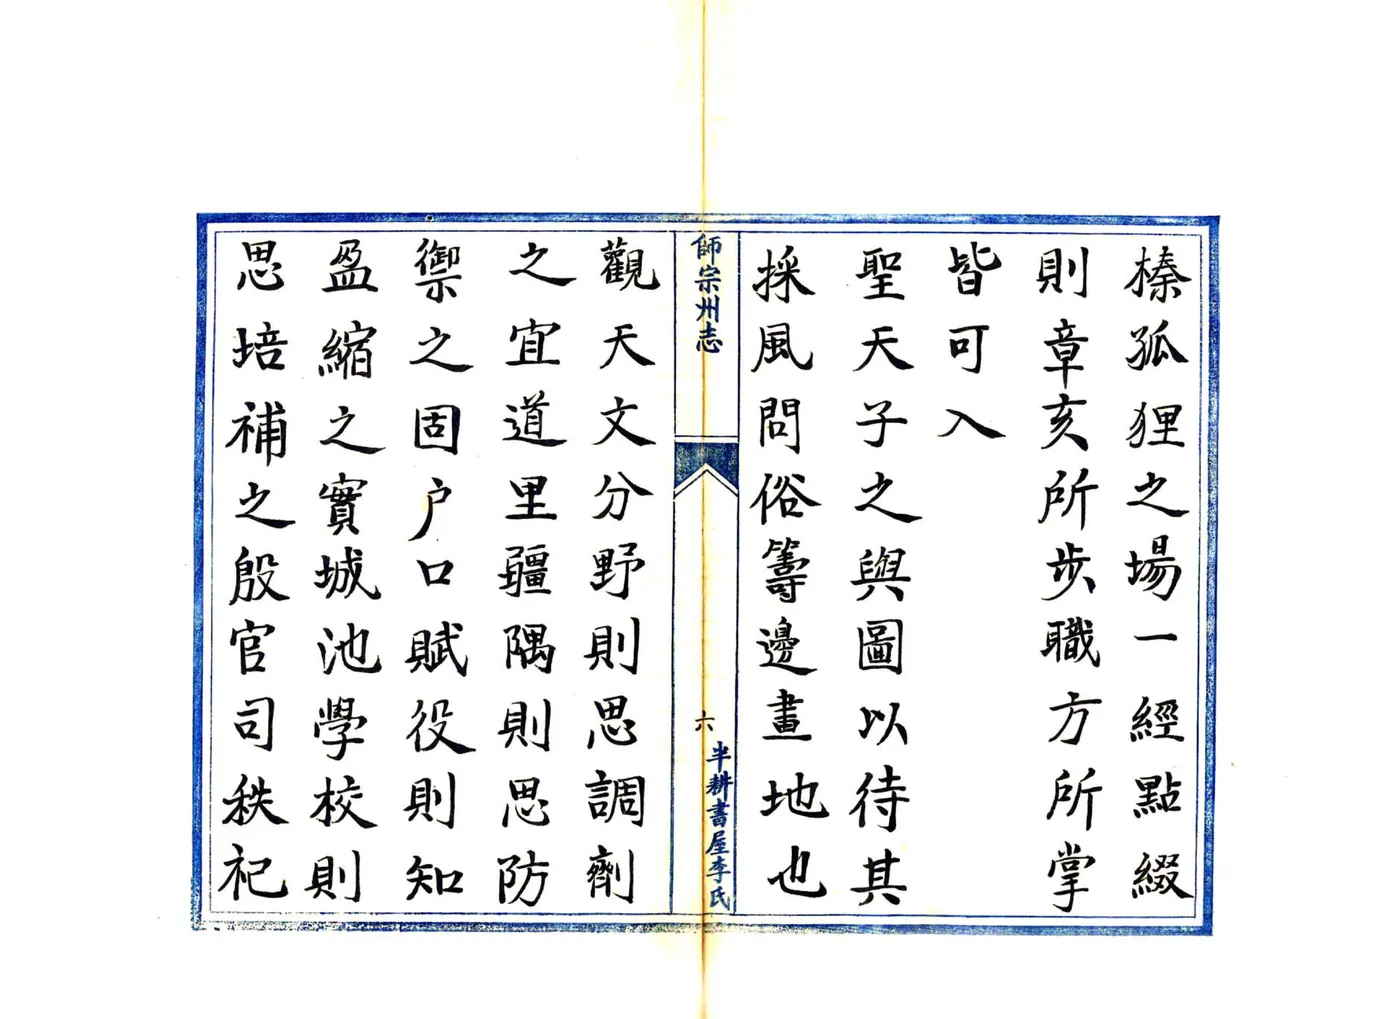 榛狐狸之場一經點綴
則章亥所步職方所掌
皆可入
聖天子之輿圖以待其
採風問俗籌邊畫地也
師宗州志
六
半耕書屋李氏
觀天文分野則思調劑
之宜道里疆隅則思防
禦之固户口賦役則知
盈縮之實城池學校則
思培補之殷官司秩祀